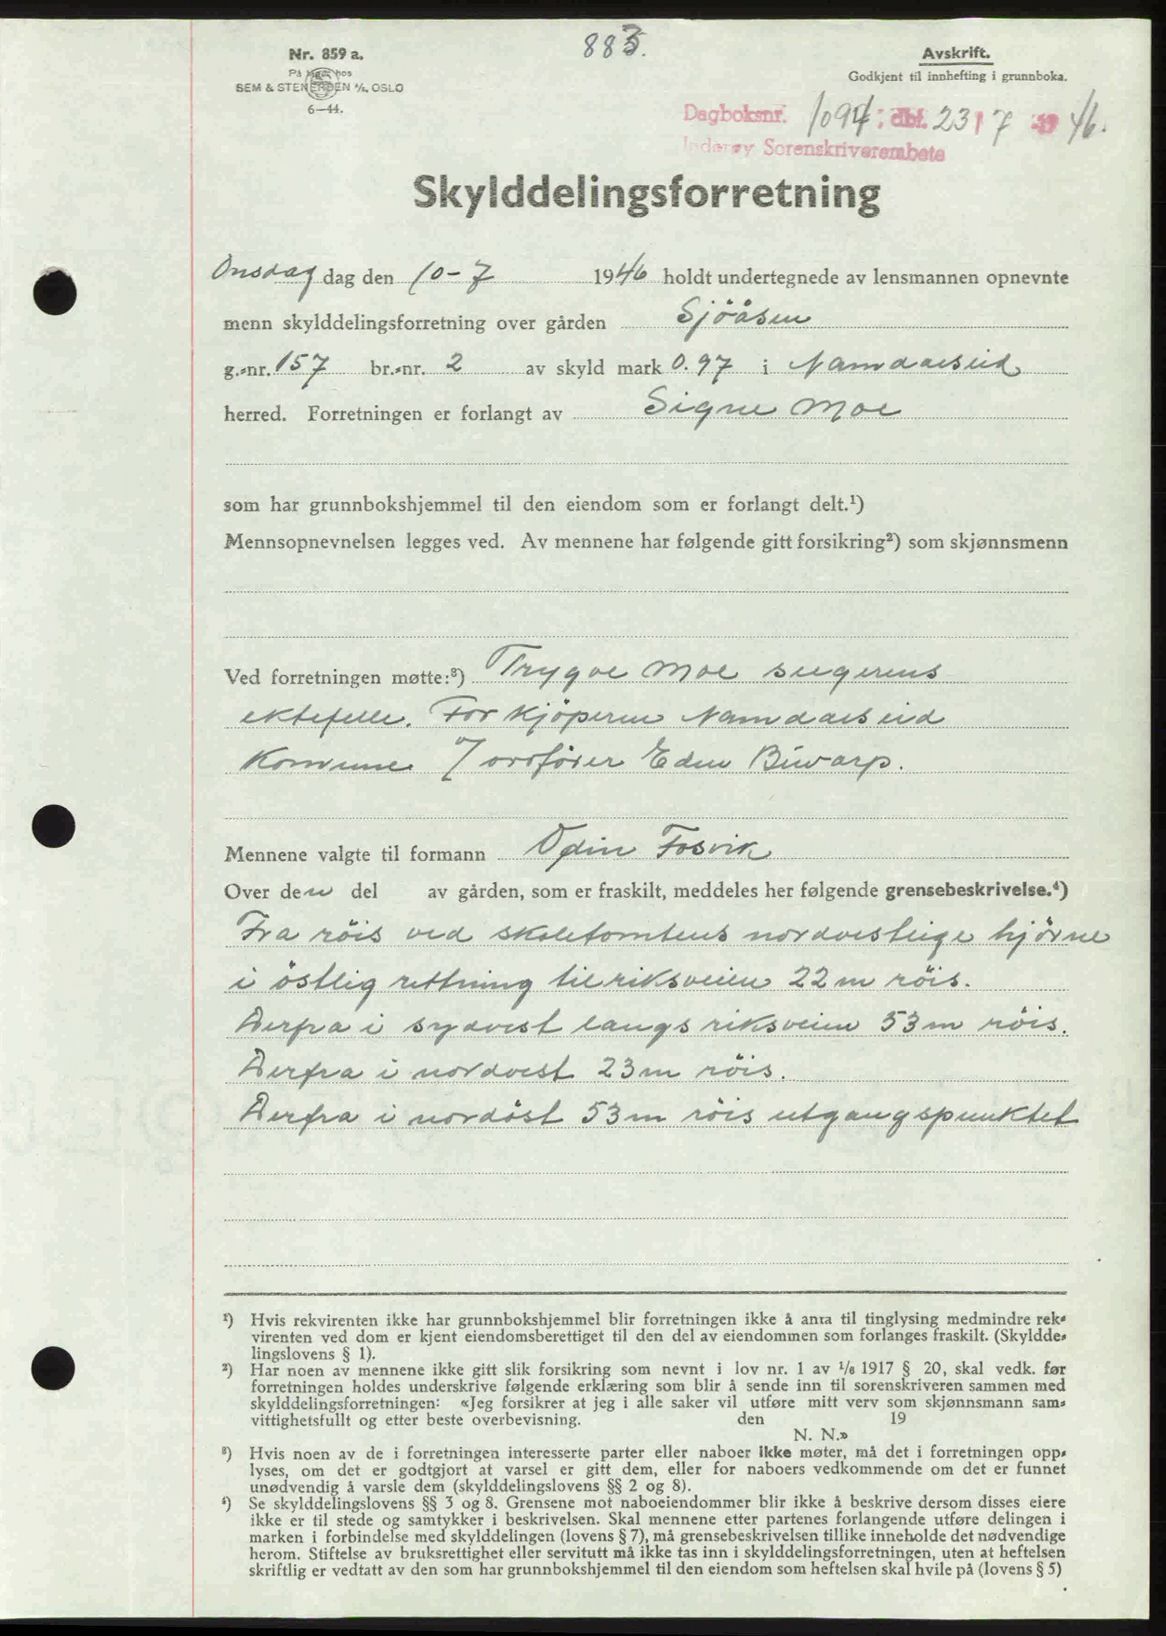 883.
Nr. 859 a.
På lager hos
SEM & STENERSEN A/S, OSLO
6—44.
Avskrift.
Godkjent til innhefting i grunnboka.
Dagboksnr. 1094, dbf. 23/7 1946.
Inderøy Sorenskriverembete
Skylddelingsforretning
Onsdag dag den 10-7 1946 holdt undertegnede av lensmannen opnevnte
menn skylddelingsforretning over gården Sjöåsen
g.-nr. 157 br.-nr. 2 av skyld mark 0.97 i Namdalseid
herred. Forretningen er forlangt av Signe Moe
som har grunnbokshjemmel til den eiendom som er forlangt delt.¹)
Mennsopnevnelsen legges ved. Av mennene har følgende gitt forsikring²) som skjønnsmenn
Ved forretningen møtte:³) Trygve Moe selgerens
ektefelle. For kjöperen Namdalseid
Kommune Edin
Mennene valgte til formann Odin Fosvik
Over den del av gården, som er fraskilt, meddeles her følgende grensebeskrivelse.⁴)
Fra röis ved skoletomtens nordvestlige hjörne
i östlig rettning til riksveien 22 m röis.
Derfra i sydvest langs riksveien 53 m röis.
Derfra i nordvest 23 m röis.
Derfra i nordöst 53 m röis utgangspunktet
¹) Hvis rekvirenten ikke har grunnbokshjemmel blir forretningen ikke å anta til tinglysing medmindre rek-
virenten ved dom er kjent eiendomsberettiget til den del av eiendommen som forlanges fraskilt. (Skyldde-
lingslovens § 1).
²) Har noen av mennene ikke gitt slik forsikring som nevnt i lov nr. 1 av 1/6 1917 § 20, skal vedk. før
forretningen holdes underskrive følgende erklæring som blir å sende inn til sorenskriveren sammen med
skylddelingsforretningen: «Jeg forsikrer at jeg i alle saker vil utføre mitt verv som skjønnsmann sam-
vittighetsfullt og etter beste overbevisning. den 19
N. N.»
³) Hvis noen av de i forretningen interesserte parter eller naboer ikke møter, må det i forretningen opp-
lyses, om det er godtgjort at varsel er gitt dem, eller for naboers vedkommende om det er funnet
unødvendig å varsle dem (skylddelingslovens §§ 2 og 8).
⁴) Se skylddelingslovens §§ 3 og 8. Grensene mot naboeiendommer blir ikke å beskrive dersom disses eiere
ikke er til stede og samtykker i beskrivelsen. Skal mennene etter partenes forlangende utføre delingen i
marken i forbindelse med skylddelingen (lovens § 7), må grensebeskrivelsen tillike inneholde det nødvendige
herom. Stiftelse av bruksrettighet eller servitutt må ikke tas inn i skylddelingsforretningen, uten at heftelsen
skriftlig er vedtatt av den som har grunnbokshjemmel til den eiendom som heftelsen skal hvile på (lovens § 5)